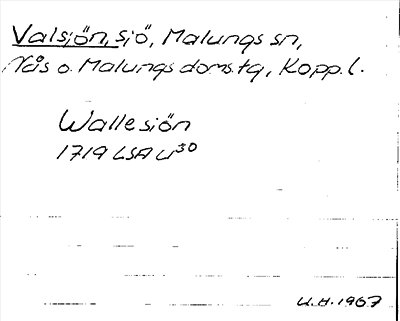 Valsjön, sjö, Malungs sn,
Nås o. Malungs doms.tg, Kopp. l.
Wallesiön
1719 LSA U30
U.H. 1967